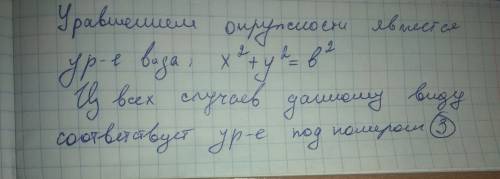 Уравнением окружности является
ур-е вида: x² + y² = b²
Из всех случаев данному виду
соответствует ур-е под номером ③